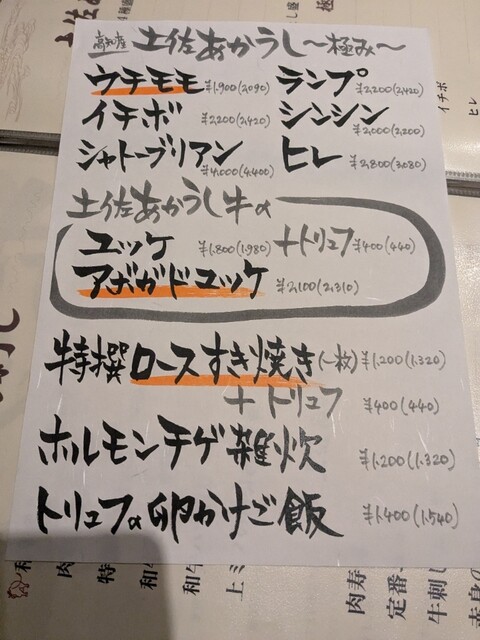 高知産 土佐あかうし～極み～
ウチモモ ¥1,900(2,090) ランプ ¥2,200(2,420)
イチボ ¥2,200(2,420) シンシン ¥2,000(2,200)
シャトーブリアン ¥4,000(4,400) ヒレ ¥2,800(3,080)
土佐あかうし牛の
ユッケ ¥1,800(1,980) +トリュフ ¥400(440)
アボガドユッケ ¥2,100(2,310)
特撰ロースすき焼き(一枚) ¥1,200(1,320)
+トリュフ ¥400(440)
ホルモンチゲ雑炊 ¥1,200(1,320)
トリュフの卵かけご飯 ¥1,400(1,540)
イチボ
ヒレ
肉寿
定番
牛刺し
上ミ